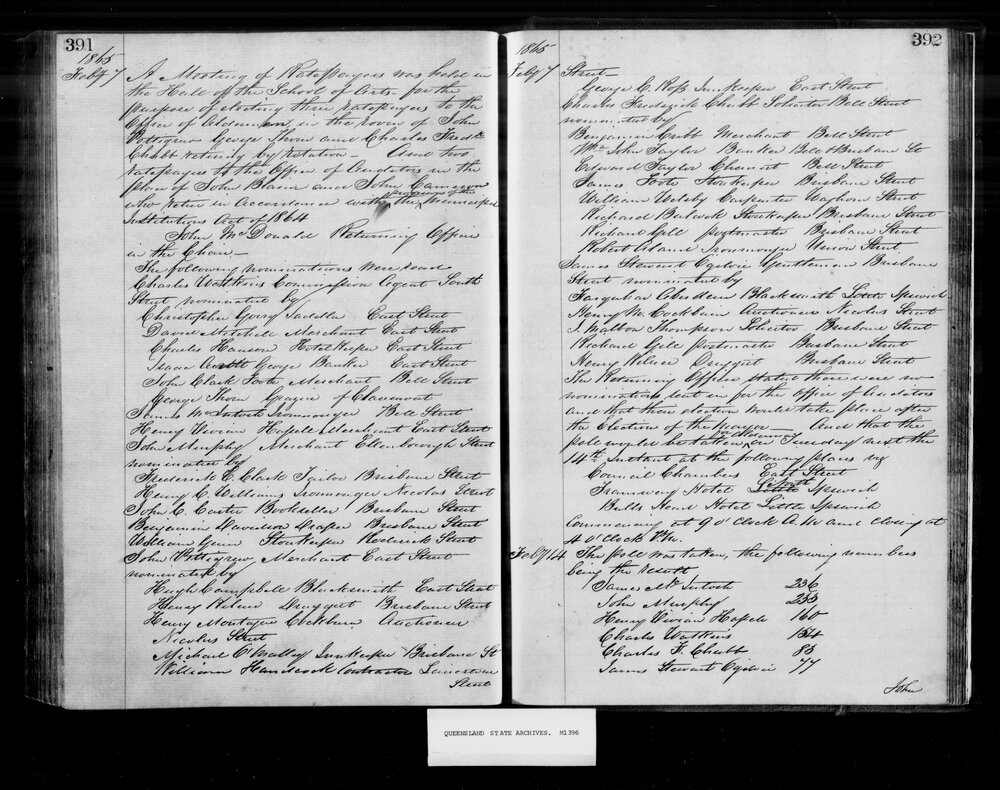 391
1865
Feby 7 A Meeting of Ratepayers was held in
the Hall of the School of Arts for the
purpose of electing three ratepayers to the
Office of Aldermen in the room of John
Pettigrew George Thorn and Charles Fredk
Chubb retiring by rotation – And two
ratepayers to the Office of Auditors in the
place of John Blaine and John Cameron
who retire in Accordance with the provisions of the Municipal
Institutions Act of 1864
John McDonald Returning Officer
in the Chair –
The following nominations were read
Charles Watkins Commission Agent South
Street nominated by
Christopher Gorry Saddler East Street
David Mitchell Merchant East Street
Charles Hanson Hotelkeeper East Street
Isaac George Banker East Street
John Clark Foote Merchant Bell Street
George Thorn Grazier of Claremont
James McIntosh Ironmonger Bell Street
Henry Vivian Hassell Merchant East Street
John Murphy Merchant Ellenborough Street
nominated by
Frederick C. Clark Tailor Brisbane Street
Henry C. Williams Ironmonger Nicolas Street
John C. Carter Bookseller Brisbane Street
Benjamin Davidson Draper Brisbane Street
William Storekeeper Roderick Street
John Pettigrew Merchant East Street
nominated by
Hugh Campbell Blacksmith East Street
Henry Kilner Druggist Brisbane Street
Henry Montague Cockburn Auctioneer
Nicolas Street
Michael O'Malley Innkeeper Brisbane St
William Handcock Contractor Limestone
Street
392
1865
Feby 7 Street –
George C. Ross Innkeeper East Street
Charles Frederick Chubb Solicitor Bell Street
nominated by
Benjamin Cribb Merchant Bell Street
Wm John Taylor Banker Bell & Brisbane St
Edward Taylor Chemist Bell Street
James Foote Storekeeper Brisbane Street
William Welsby Carpenter Waghorn Street
Richard Storekeeper Brisbane Street
Richard Gill postmaster Brisbane Street
Robert Ironmonger Union Street
James Stewart Ogilvie Gentleman Brisbane
Street nominated by
Farquhar Blacksmith Little Ipswich
Henry M. Cockburn Auctioneer Nicolas Street
J. Malbon Thompson Solicitor Brisbane Street
Richard Gill postmaster Brisbane Street
Henry Kilner Druggist Brisbane Street
The Returning Officer stated there were no
nominations sent in for the office of Auditors
and that their election would take place after
the Election of the Mayor – And that the
pole would be taken for Aldermen on Tuesday next the
14th instant at the following places viz
Council Chambers East Street
Tramway Hotel North Ipswich
Bulls Head Hotel Little Ipswich
Commencing at 9 o'Clock A.M and closing at
4 o'Clock P.M.
Feby 14 The poll was taken, the following numbers
being the result
James McIntosh 236
John Murphy
Henry Vivian Hassell 160
Charles Watkins
Charles F. Chubb 83
James Stewart Ogilvie 77
John
QUEENSLAND STATE ARCHIVES. M1396